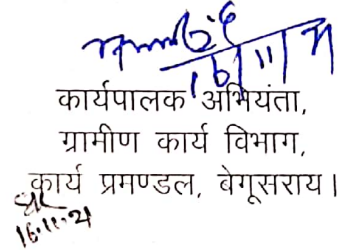 16/11/21
कार्यपालक अभियंता,
ग्रामीण कार्य विभाग,
कार्य प्रमण्डल, बेगूसराय।
16.11.21